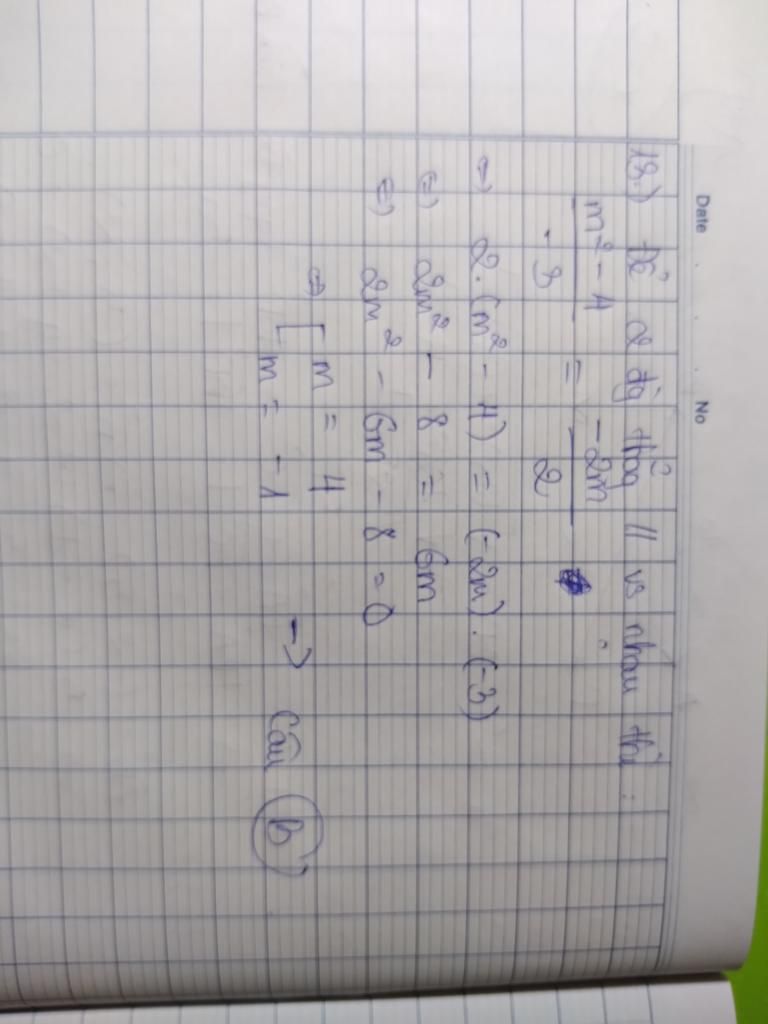 Date No
18.) Để 2 đg thẳg // vs nhau thì :
m² - 4 / -3 = -2m / 2
⇔) 2. (m² - 4) = (-2m) . (-3)
⇔) 2m² - 8 = 6m
⇔) 2m² - 6m - 8 = 0
⇔) [ m = 4
m = -1 → Câu B